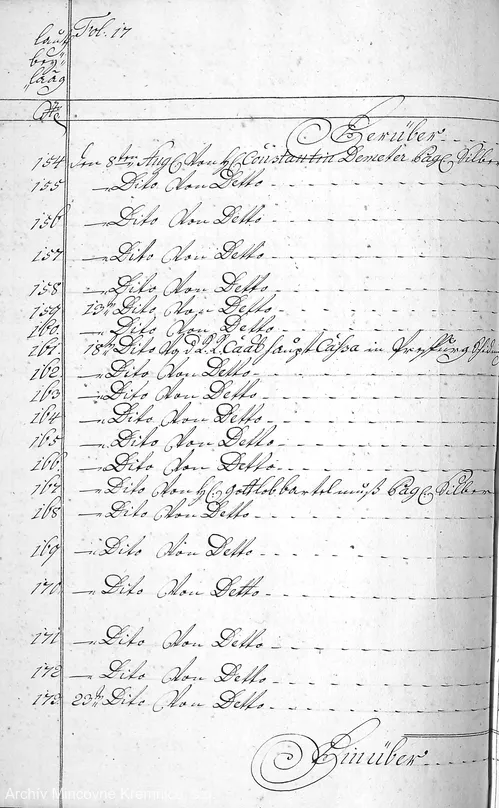 Fol. 17
laut
bey
laag
No
Herüber
154 den 8ten Aug Von H Constantin Demeter Pag Silber
155 — Dito Von Detto
156 — Dito Von Detto
157 — Dito Von Detto
158 — Dito Von Detto
159 13n Dito Von Detto
160 — Dito Von Detto
161 18n Dito Caal haupt Cassa in Presburg
162 — Dito Von Detto
163 — Dito Von Detto
164 — Dito Von Detto
165 — Dito Von Detto
166 — Dito Von Detto
167 — Dito Von H Gottlob bartelmuß Pag Silber
168 — Dito Von Detto
169 — Dito Von Detto
170 — Dito Von Detto
171 — Dito Von Detto
172 — Dito Von Detto
173 23n Dito Von Detto
Hinüber
Archív Mincovne Kremnica